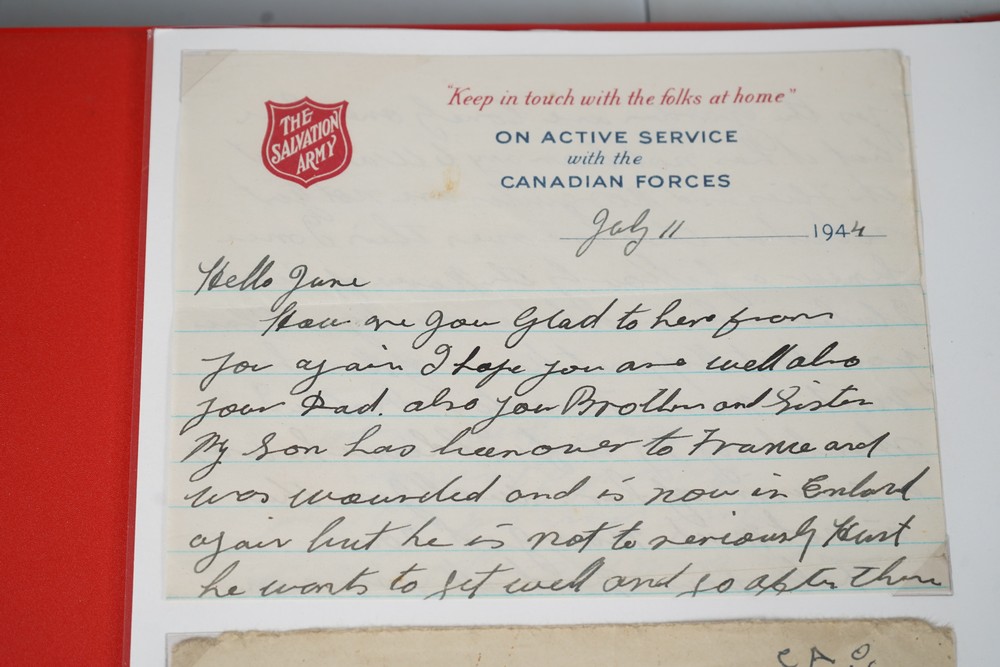 THE
SALVATION
ARMY
"Keep in touch with the folks at home"
ON ACTIVE SERVICE
with the
CANADIAN FORCES
July 11 1944
Hello June
How are you Glad to here from
you again I hope you are well also
your Dad. also your Brother and Sister
My Son has been over to France and
was wounded and is now in Enlard
again but he is not to seriously Hurt
he wants to get well and go after them